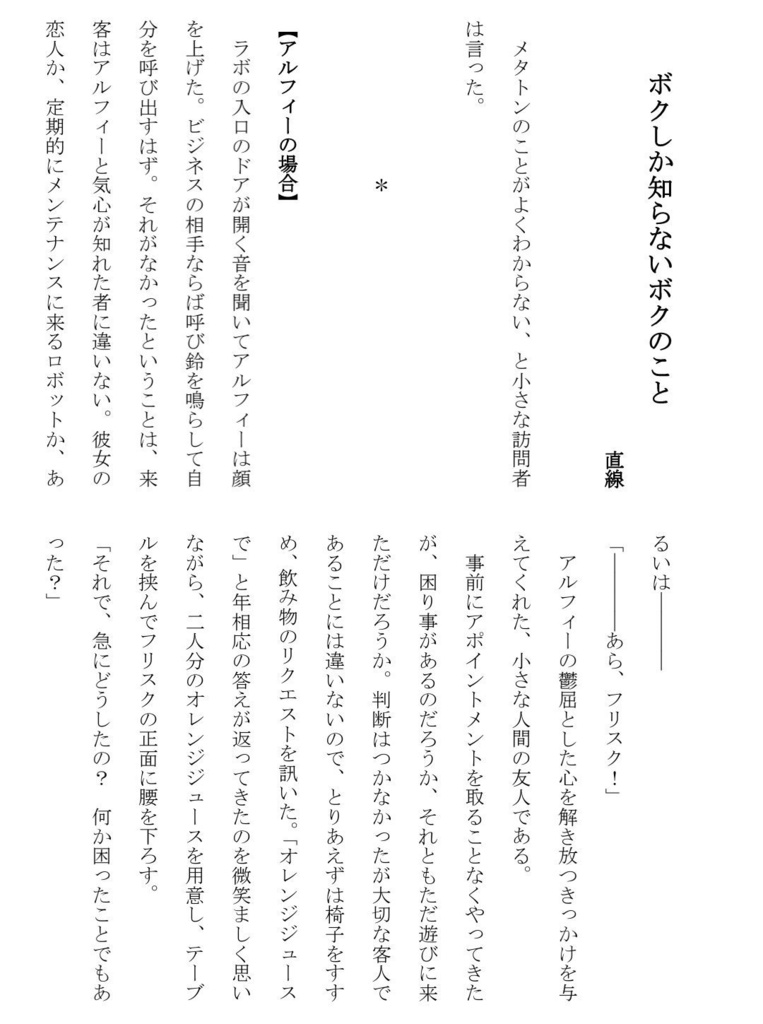 ボクしか知らないボクのこと
直線
メタトンのことがよくわからない、と小さな訪問者
は言った。
＊
【アルフィーの場合】
ラボの入口のドアが開く音を聞いてアルフィーは顔
を上げた。ビジネスの相手ならば呼び鈴を鳴らして自
分を呼び出すはず。それがなかったということは、来
客はアルフィーと気心が知れた者に違いない。彼女の
恋人か、定期的にメンテナンスに来るロボットか、あ
るいは――――
「――――あら、フリスク！」
アルフィーの鬱屈とした心を解き放つきっかけを与
えてくれた、小さな人間の友人である。
事前にアポイントメントを取ることなくやってきた
が、困り事があるのだろうか、それともただ遊びに来
ただけだろうか。判断はつかなかったが大切な客人で
あることには違いないので、とりあえずは椅子をすす
め、飲み物のリクエストを訊いた。「オレンジジュース
で」と年相応の答えが返ってきたのを微笑ましく思い
ながら、二人分のオレンジジュースを用意し、テーブ
ルを挟んでフリスクの正面に腰を下ろす。
「それで、急にどうしたの？　何か困ったことでもあ
った？」